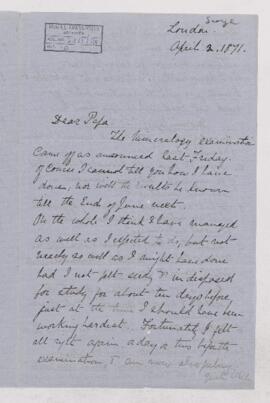 George
London
April 2, 1871.
Dear Papa
The Mineralogy examination
Came off as announced last Friday.
Of course I cannot tell you how I have
done, nor will the results be known
till the End of June next.
On the whole I think I have managed
as well as I expected to do, but not
nearly so well as I might have done
had I not felt seedy & indisposed
for study for about ten days before,
just at the time I should have been
working hardest. Fortunately I felt
all right again a day or two before the
examination, & am now